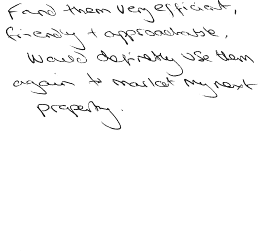 Found them very efficient,
friendly + approachable,
Would definitely use them
again to market my next
property.